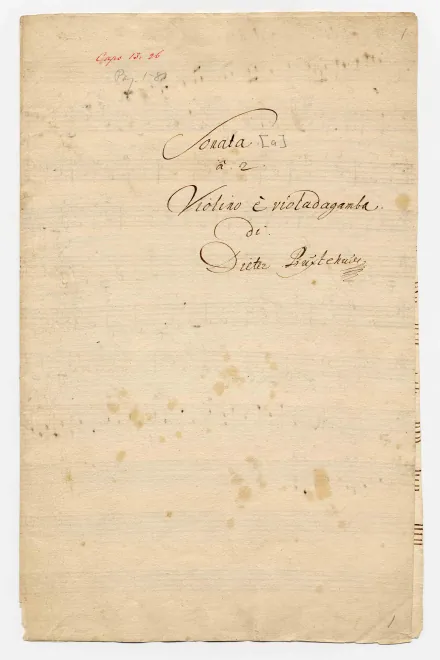 1
Capo 13, 26
Pag. 1-8
Sonata [a]
à 2
Violino è violadagamba.
di.
Dieter Buxtehude
1